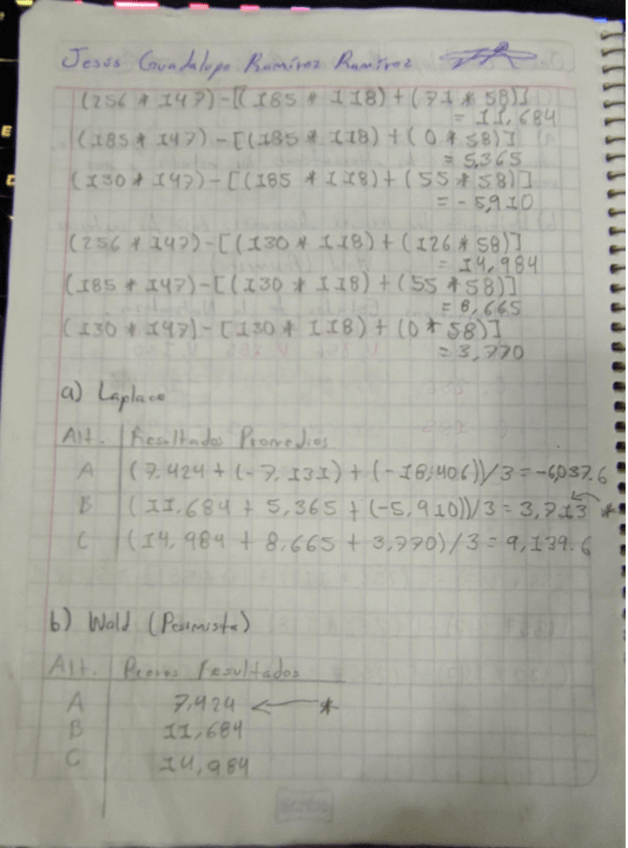 Jesus Guadalupe Ramírez Ramírez
(256 * 147) - [(185 * 118) + (71 * 58)]
= 11,684
(185 * 147) - [(185 * 118) + (0 * 58)]
= 5,365
(130 * 147) - [(185 * 118) + (55 * 58)]
= - 5,910
(256 * 147) - [(130 * 118) + (126 * 58)]
= 14,984
(185 * 147) - [(130 * 118) + (55 * 58)]
= 8,665
(130 * 147) - [130 * 118) + (0 * 58)]
= 3,770
a) Laplace
Alt. Resultados Promedios
A (7,424 + (-7,131) + (-18,406))/3 = -6,037.6
B (11,684 + 5,365 + (-5,910))/3 = 3,713 ← *
C (14,984 + 8,665 + 3,770)/3 = 9,139.6
b) Wald (Pesimista)
Alt. Peores resultados
A 7,424 ← *
B 11,684
C 14,984